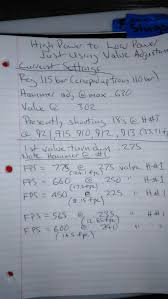 High Power to Low Power
Just Using Valve Adjustment
Current Settings
Reg 115 bar 110 bar)
Hammer adj @ max .630
Valve @ 302
Presently shooting 18g @ H#1
@ 921, 915, 910, 912, 913
1st valve turn down .275
Note Hammer @ #1
FPS = 775 @ .275 valve H#1
FPS = 660 @ .250 " H#1
FPS = 450 @ .225 " H#1
FPS = 565 @ .235 " H#1
FPS = 600 @ .240 "